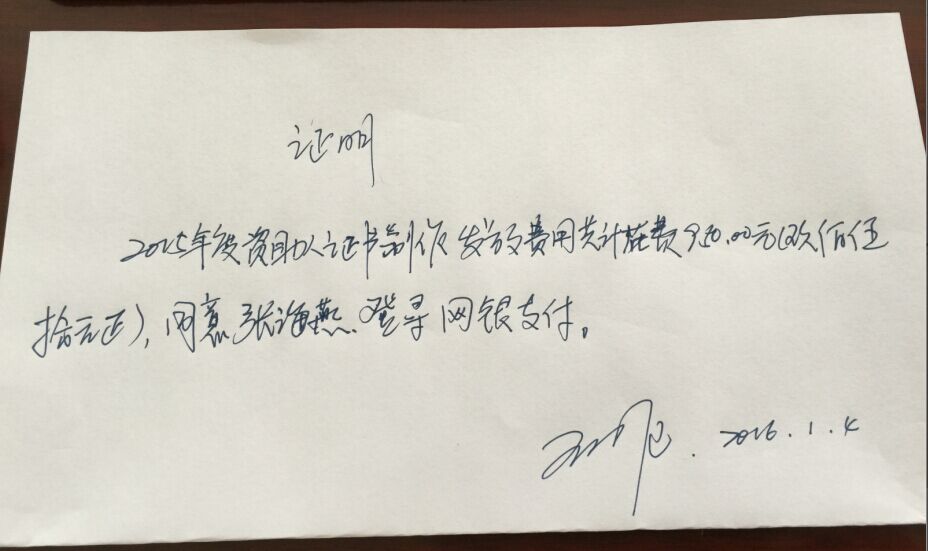 证明
2025年度资助人证书制作发放费用共计花费950.00元(玖佰伍
拾元正),同意张海燕登录网银支付。
2026.1.4